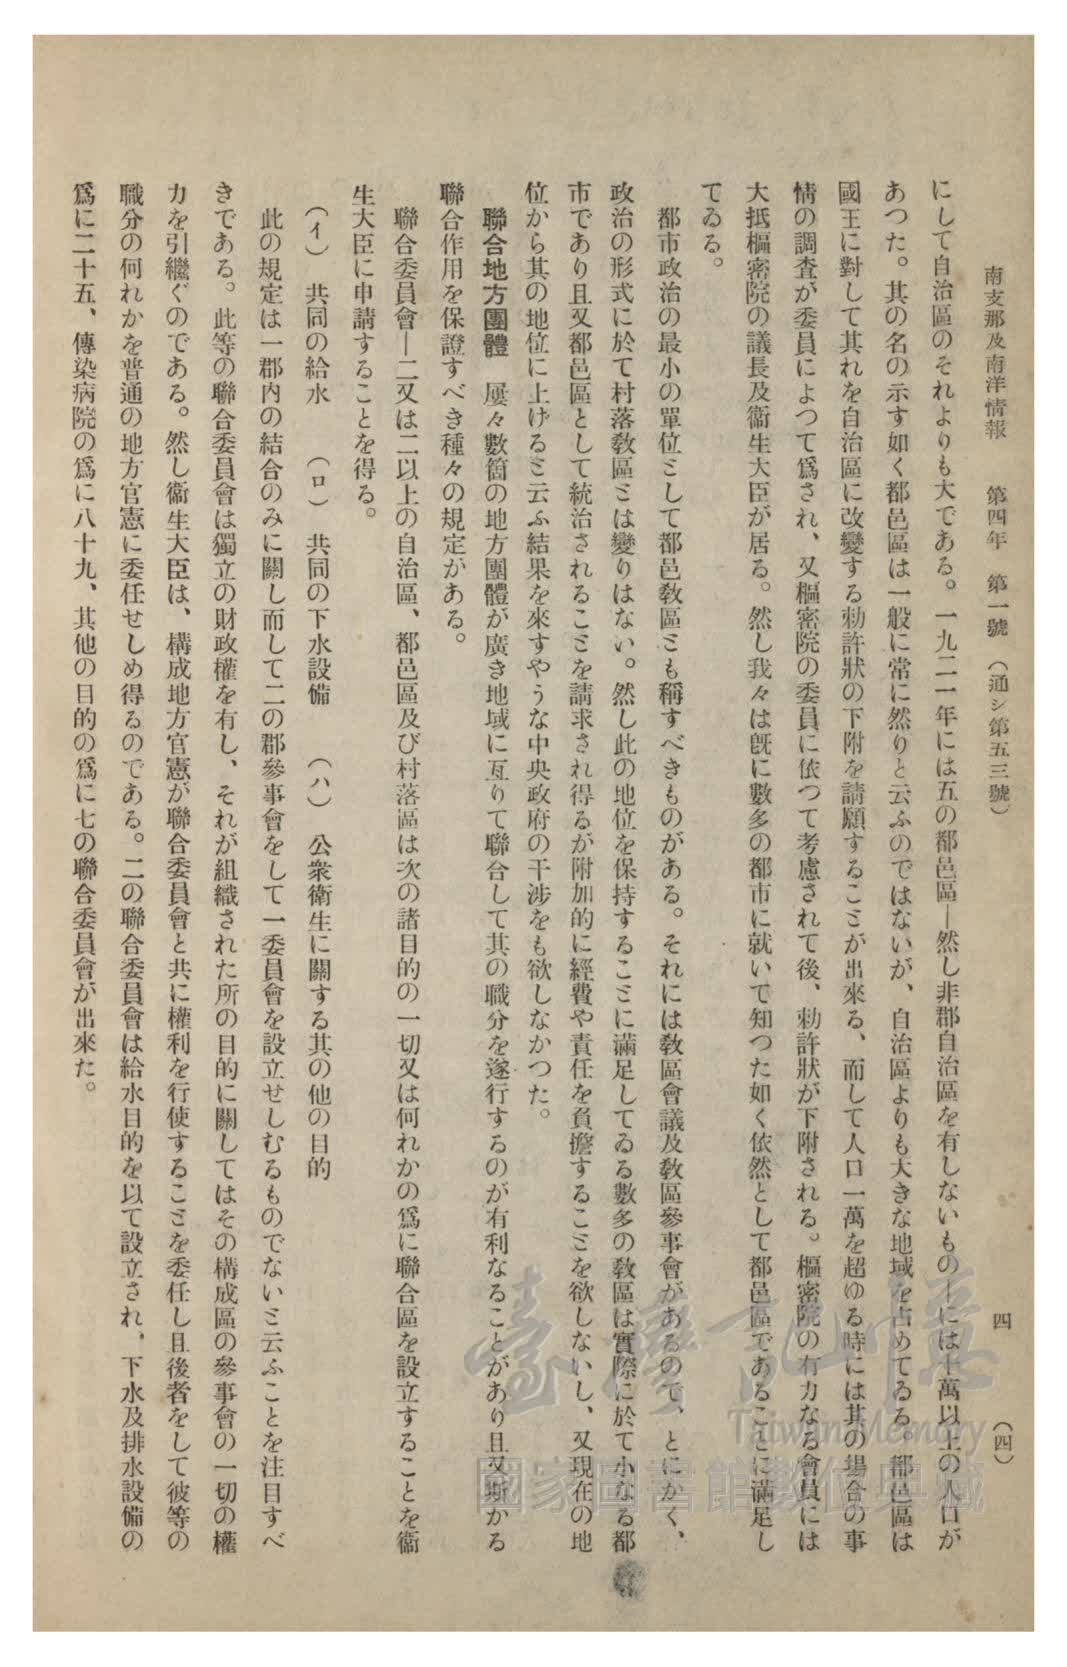 南支那及南洋情報　第四年　第一號　（通シ第五三號）　四　（四）
にして自治區のそれよりも大である。一九二一年には五の都邑區―然し非郡自治區を有しないもの―には十萬以上の人口が
あつた。其の名の示す如く都邑區は一般に常に然りと云ふのではないが、自治區よりも大きな地域を占めてゐる。都邑區は
國王に對して其れを自治區に改變する勅許狀の下附を請願することが出來る、而して人口一萬を超ゆる時には其の場合の事
情の調査が委員によつて爲され、又樞密院の委員に依つて考慮されて後、勅許狀が下附される。樞密院の有力なる會員には
大抵樞密院の議長及衞生大臣が居る。然し我々は既に數多の都市に就いて知つた如く依然として都邑區であることに滿足し
てゐる。
都市政治の最小の單位として都邑敎區とも稱すべきものがある。それには敎區會議及敎區參事會があるので、とにかく、
政治の形式に於て村落敎區とは變りはない。然し此の地位を保持することに滿足してゐる數多の敎區は實際に於て小なる都
市であり且又都邑區として統治されることを請求され得るが附加的に經費や責任を負擔することを欲しないし、又現在の地
位から其の地位に上げると云ふ結果を來すやうな中央政府の干涉をも欲しなかつた。
聯合地方團體　屢々數箇の地方團體が廣き地域に亙りて聯合して其の職分を遂行するのが有利なることがあり且又斯かる
聯合作用を保證すべき種々の規定がある。
聯合委員會―二又は二以上の自治區、都邑區及び村落區は次の諸目的の一切又は何れかの爲に聯合區を設立することを衞
生大臣に申請することを得る。
（イ）　共同の給水　　（ロ）　共同の下水設備　　（ハ）　公衆衛生に關する其の他の目的
此の規定は一郡內の結合のみに關し而して二の郡參事會をして一委員會を設立せしむるものでないと云ふことを注目すべ
きである。此等の聯合委員會は獨立の財政權を有し、それが組織された所の目的に關してはその構成區の參事會の一切の權
力を引繼ぐのである。然し衞生大臣は、構成地方官憲が聯合委員會と共に權利を行使することを委任し且後者をして彼等の
職分の何れかを普通の地方官憲に委任せしめ得るのである。二の聯合委員會は給水目的を以て設立され、下水及排水設備の
爲に二十五、傳染病院の爲に八十九、其他の目的の爲に七の聯合委員會が出來た。
臺灣記憶
Taiwan Memory
國家圖書館數位典藏